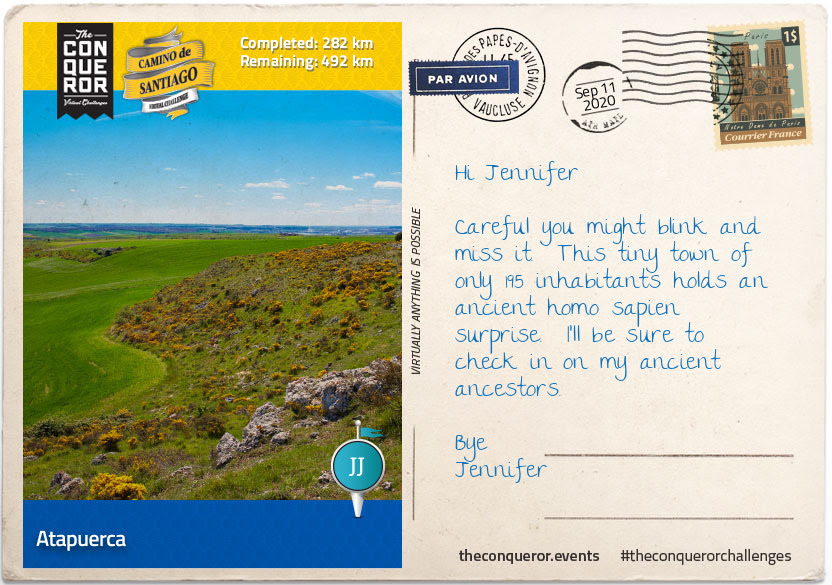 The
CON
QUE
ROR
Virtual Challenges
CAMINO de
SANTIAGO
VIRTUAL CHALLENGE
Completed: 282 km
Remaining: 492 km
JJ
Atapuerca
VIRTUALLY ANYTHING IS POSSIBLE
PAR AVION
DES PAPES-D'AVIGNON
VAUCLUSE
Sep 11
2020
AIR MAIL
Paris
1$
Notre Dame de Paris
Courrier France
Hi Jennifer
Careful you might blink and
miss it. This tiny town of
only 195 inhabitants holds an
ancient homo sapien
surprise. I'll be sure to
check in on my ancient
ancestors.
Bye
Jennifer
theconqueror.events #theconquerorchallenges